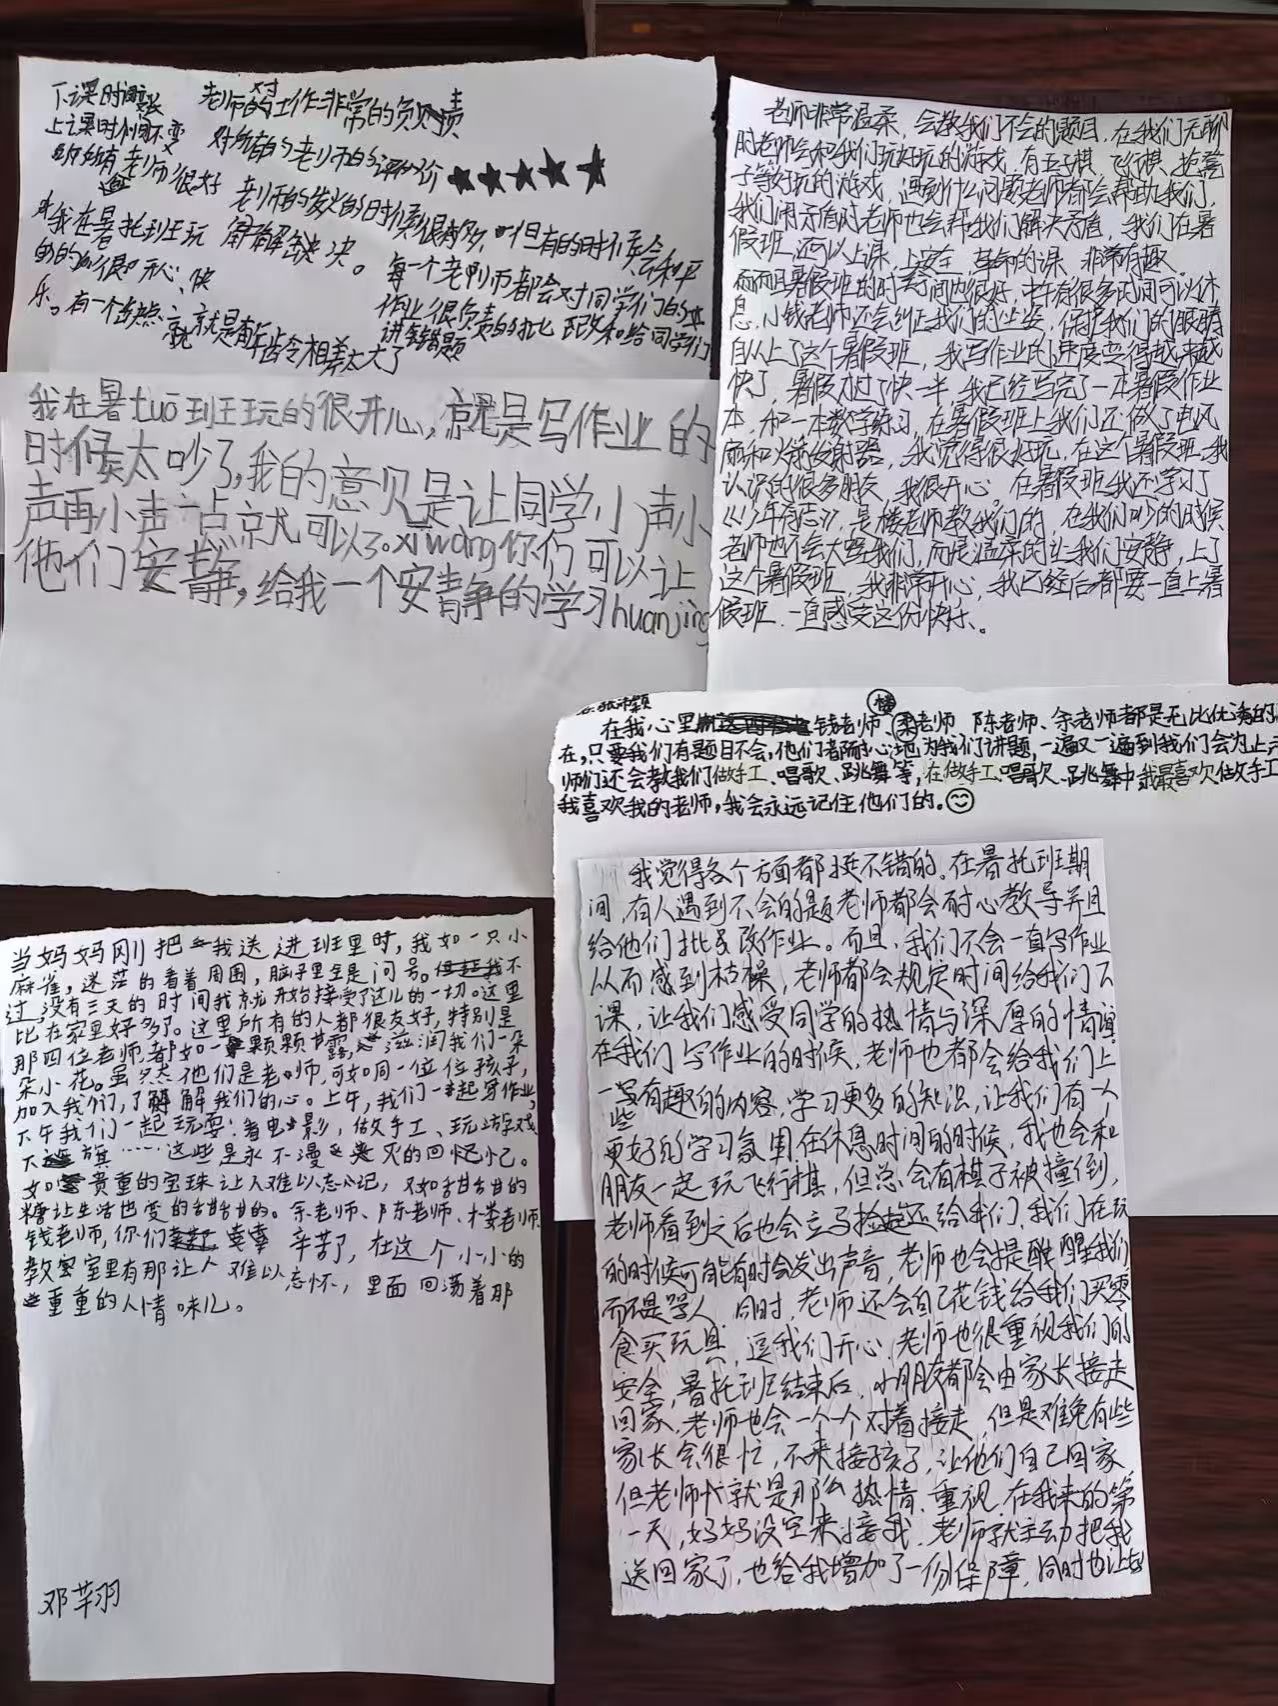 下课时间变长
上课时间不变
所有老师很好
我在暑托班玩
的很开心、快
乐。有一个缺点
就是年龄令相差太大了
老师对工作非常的负责
对所有的老师的评价★★★★★
老师的发火的时候很多，但有的时候会和平
解决。
每一个老师都会对同学们的
作业很负责的批改和给同学们
讲错题
我在暑tuō班玩的很开心，就是写作业的
时候太吵了，我的意见是让同学小声小
声再小声一点就可以了。xīwàng你们可以让
他们安静，给我一个安静的学习huanjing
老师非常温柔，会教我们不会的题目，在我们无聊
时老师会和我们玩好玩的游戏，有五子棋、飞行棋、抢凳
子等好玩的游戏，遇到什么问题老师都会帮助我们，
我们闹矛盾时老师也会帮我们解决矛盾，我们在暑
假班还可以上课，上安全、革命的课，非常有趣。
而且暑假班的时间也很好，中午有很多时间可以休
息，小钱老师还会纠正我们的坐姿，保护我们的眼睛
自从上了这个暑假班，我写作业的速度变得越来越
快了，暑假才过了快一半，我已经写完了一本暑假作业
本，和一本数学练习，在暑假班上我们还做了电风
扇和火箭发射器，我觉得很好玩，在这个暑假班，我
认识的很多朋友，我很开心。在暑假班我还学习了
《少年有志》，是楼老师教我们的，在我们吵的时候
老师也不会大骂我们，而是温柔的让我们安静，上了
这个暑假班，我非常开心，我已经后都要一直上暑
假班，一直感受这份快乐。
在我心里钱老师、楼老师、陈老师、余老师都是无比优秀的
在，只要我们有题目不会，他们都耐心地为我们讲题，一遍又一遍到我们会为止
师们还会教我们做手工、唱歌、跳舞等，在做手工、唱歌、跳舞中，我最喜欢做手工
我喜欢我的老师，我会永远记住他们的。
当妈妈刚把我送进班里时，我如一只小
麻雀，迷茫的看着周围，脑子里全是问号。不
过，没有三天的时间我就开始接受了这儿的一切。这里
比在家里好多了。这里所有的人都很友好，特别是
那四位老师，都如一颗颗甘露，滋润我们一朵
朵小花。虽然他们是老师，可如同一位位孩子，
加入我们，了解我们的心。上午，我们一起写作业，
下午我们一起玩耍：看电影，做手工、玩游戏
下棋……这些是永不漫灭的回忆。
如贵重的宝珠让人难以忘记，又如甜甜的
糖让生活也变的甜甜的。余老师、陈老师、楼老师、
钱老师，你们辛苦了，在这个小小的
教室里有那让人难以忘怀，里面回荡着那
重重的人情味儿。
邓芊羽
我觉得各个方面都挺不错的。在暑托班期
间，有人遇到不会的题老师都会耐心教导并且
给他们批改作业。而且，我们不会一直写作业
从而感到枯燥，老师都会规定时间给我们下
课，让我们感受同学的热情与深厚的情谊
在我们写作业的时候，老师也都会给我们上
一些有趣的内容，学习更多的知识，让我们有一个
更好的学习氛围，在休息时间的时候，我也会和
朋友一起玩飞行棋，但总会有棋子被撞倒，
老师看到之后也会立马捡起还给我们，我们在玩
的时候可能有时会发出声音，老师也会提醒我们
而不是骂人，同时，老师还会自己花钱给我们买零
食买玩具，逗我们开心，老师也很重视我们的
安全，暑托班结束后，小朋友都会由家长接走
回家，老师也会一个一个对着接走，但是难免有些
家长会很忙，不来接孩子，让他们自己回家
但老师就是那么热情、重视，在我来的第
一天，妈妈没空来接我，老师就主动把我
送回家了，也给我增加了一份保障，同时也让